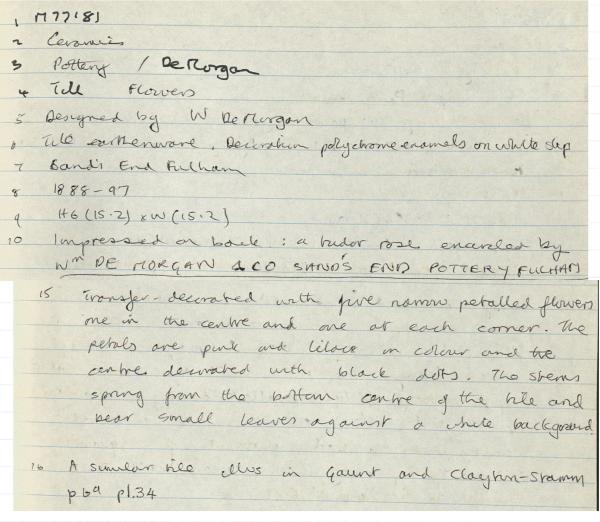 1 M77'81
2 Ceramics
3 Pottery / De Morgan
4 Tile Flowers
5 Designed by W De Morgan
6 Tile earthenware. Decoration polychrome enamels on white slip
7 Sand's End Fulham
8 1888-97
9 H6 (15.2) x W (15.2)
10 Impressed on back : a tudor rose encircled by
Wm DE MORGAN & CO SAND'S END POTTERY FULHAM
15 Transfer-decorated with five narrow petalled flowers
one in the centre and one at each corner. The
petals are pink and lilace in colour and the
centre decorated with black dots. The stems
spring from the bottom centre of the tile and
bear small leaves against a white background
16 A similar tile illus in Gaunt and Clayton-Stamm
p69 pl.34